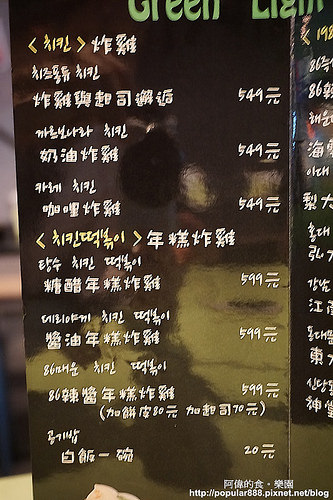 Green Light
<치킨> 炸雞
치즈퐁듀 치킨
炸雞與起司邂逅 549元
까르보나라 치킨
奶油炸雞 549元
카레 치킨
咖哩炸雞 549元
<치킨떡볶이> 年糕炸雞
탕수 치킨 떡볶이
糖醋年糕炸雞 599元
데리야끼 치킨 떡볶이
醬油年糕炸雞 599元
86매운 치킨 떡볶이
86辣醬年糕炸雞 599元
(加餅皮80元 加起司70元)
공기밥
白飯一碗 20元
<198
86
海
이대
梨大
홍대
弘大
강남
江南
동대문
東大
신당동
神堂
阿偉的食‧樂園
http://popular888.pixnet.net/blog